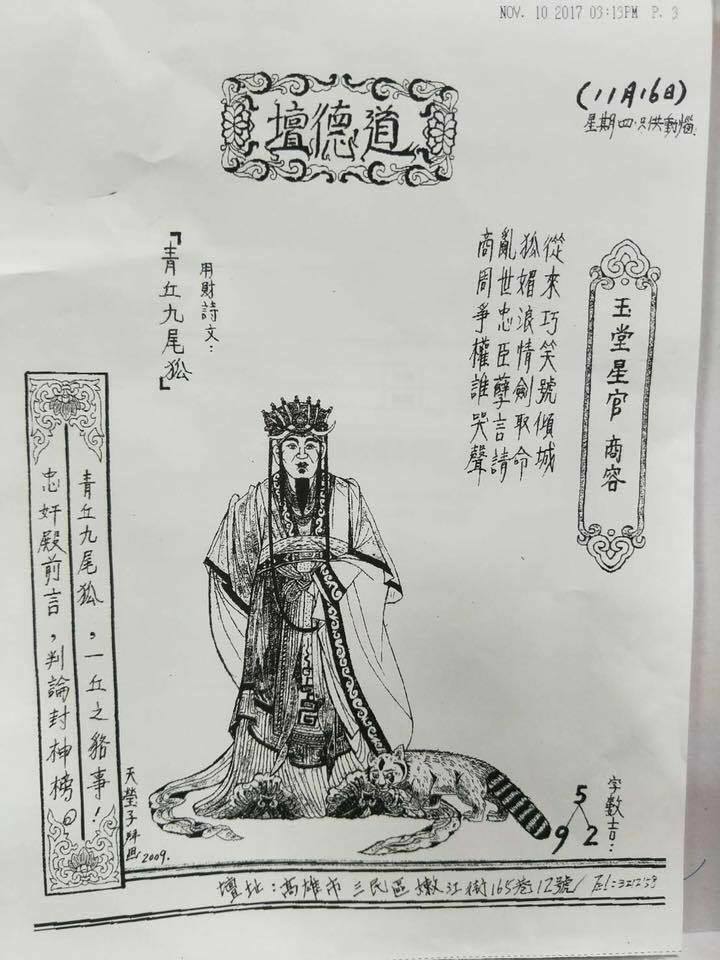 NOV. 10 2017 03:13PM P. 3
(11月16日)
星期四.只供動惱
道德壇
玉堂星官 商容
從來巧笑號傾城
狐媚浪情劍取命
亂世忠臣孽言請
商周爭權誰哭聲
用財詩文：
『青丘九尾狐』
青丘九尾狐，一丘之貉事！
忠奸殿前言，判論封神榜。
天瑩子
2009.
字數吉：
5
9 2
壇址：高雄市三民區嫩江街165巷12號